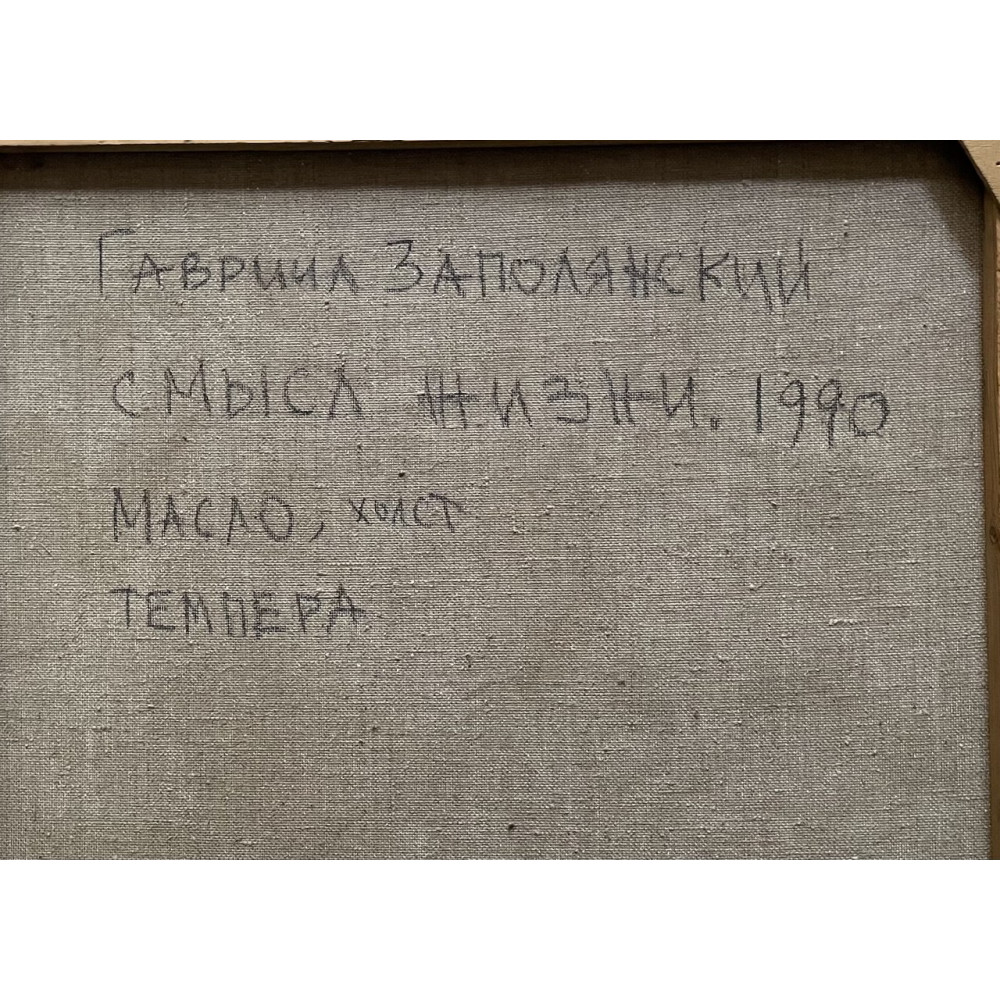 Гавриил Заполянский
смысл жизни. 1990
масло, холст
темпера